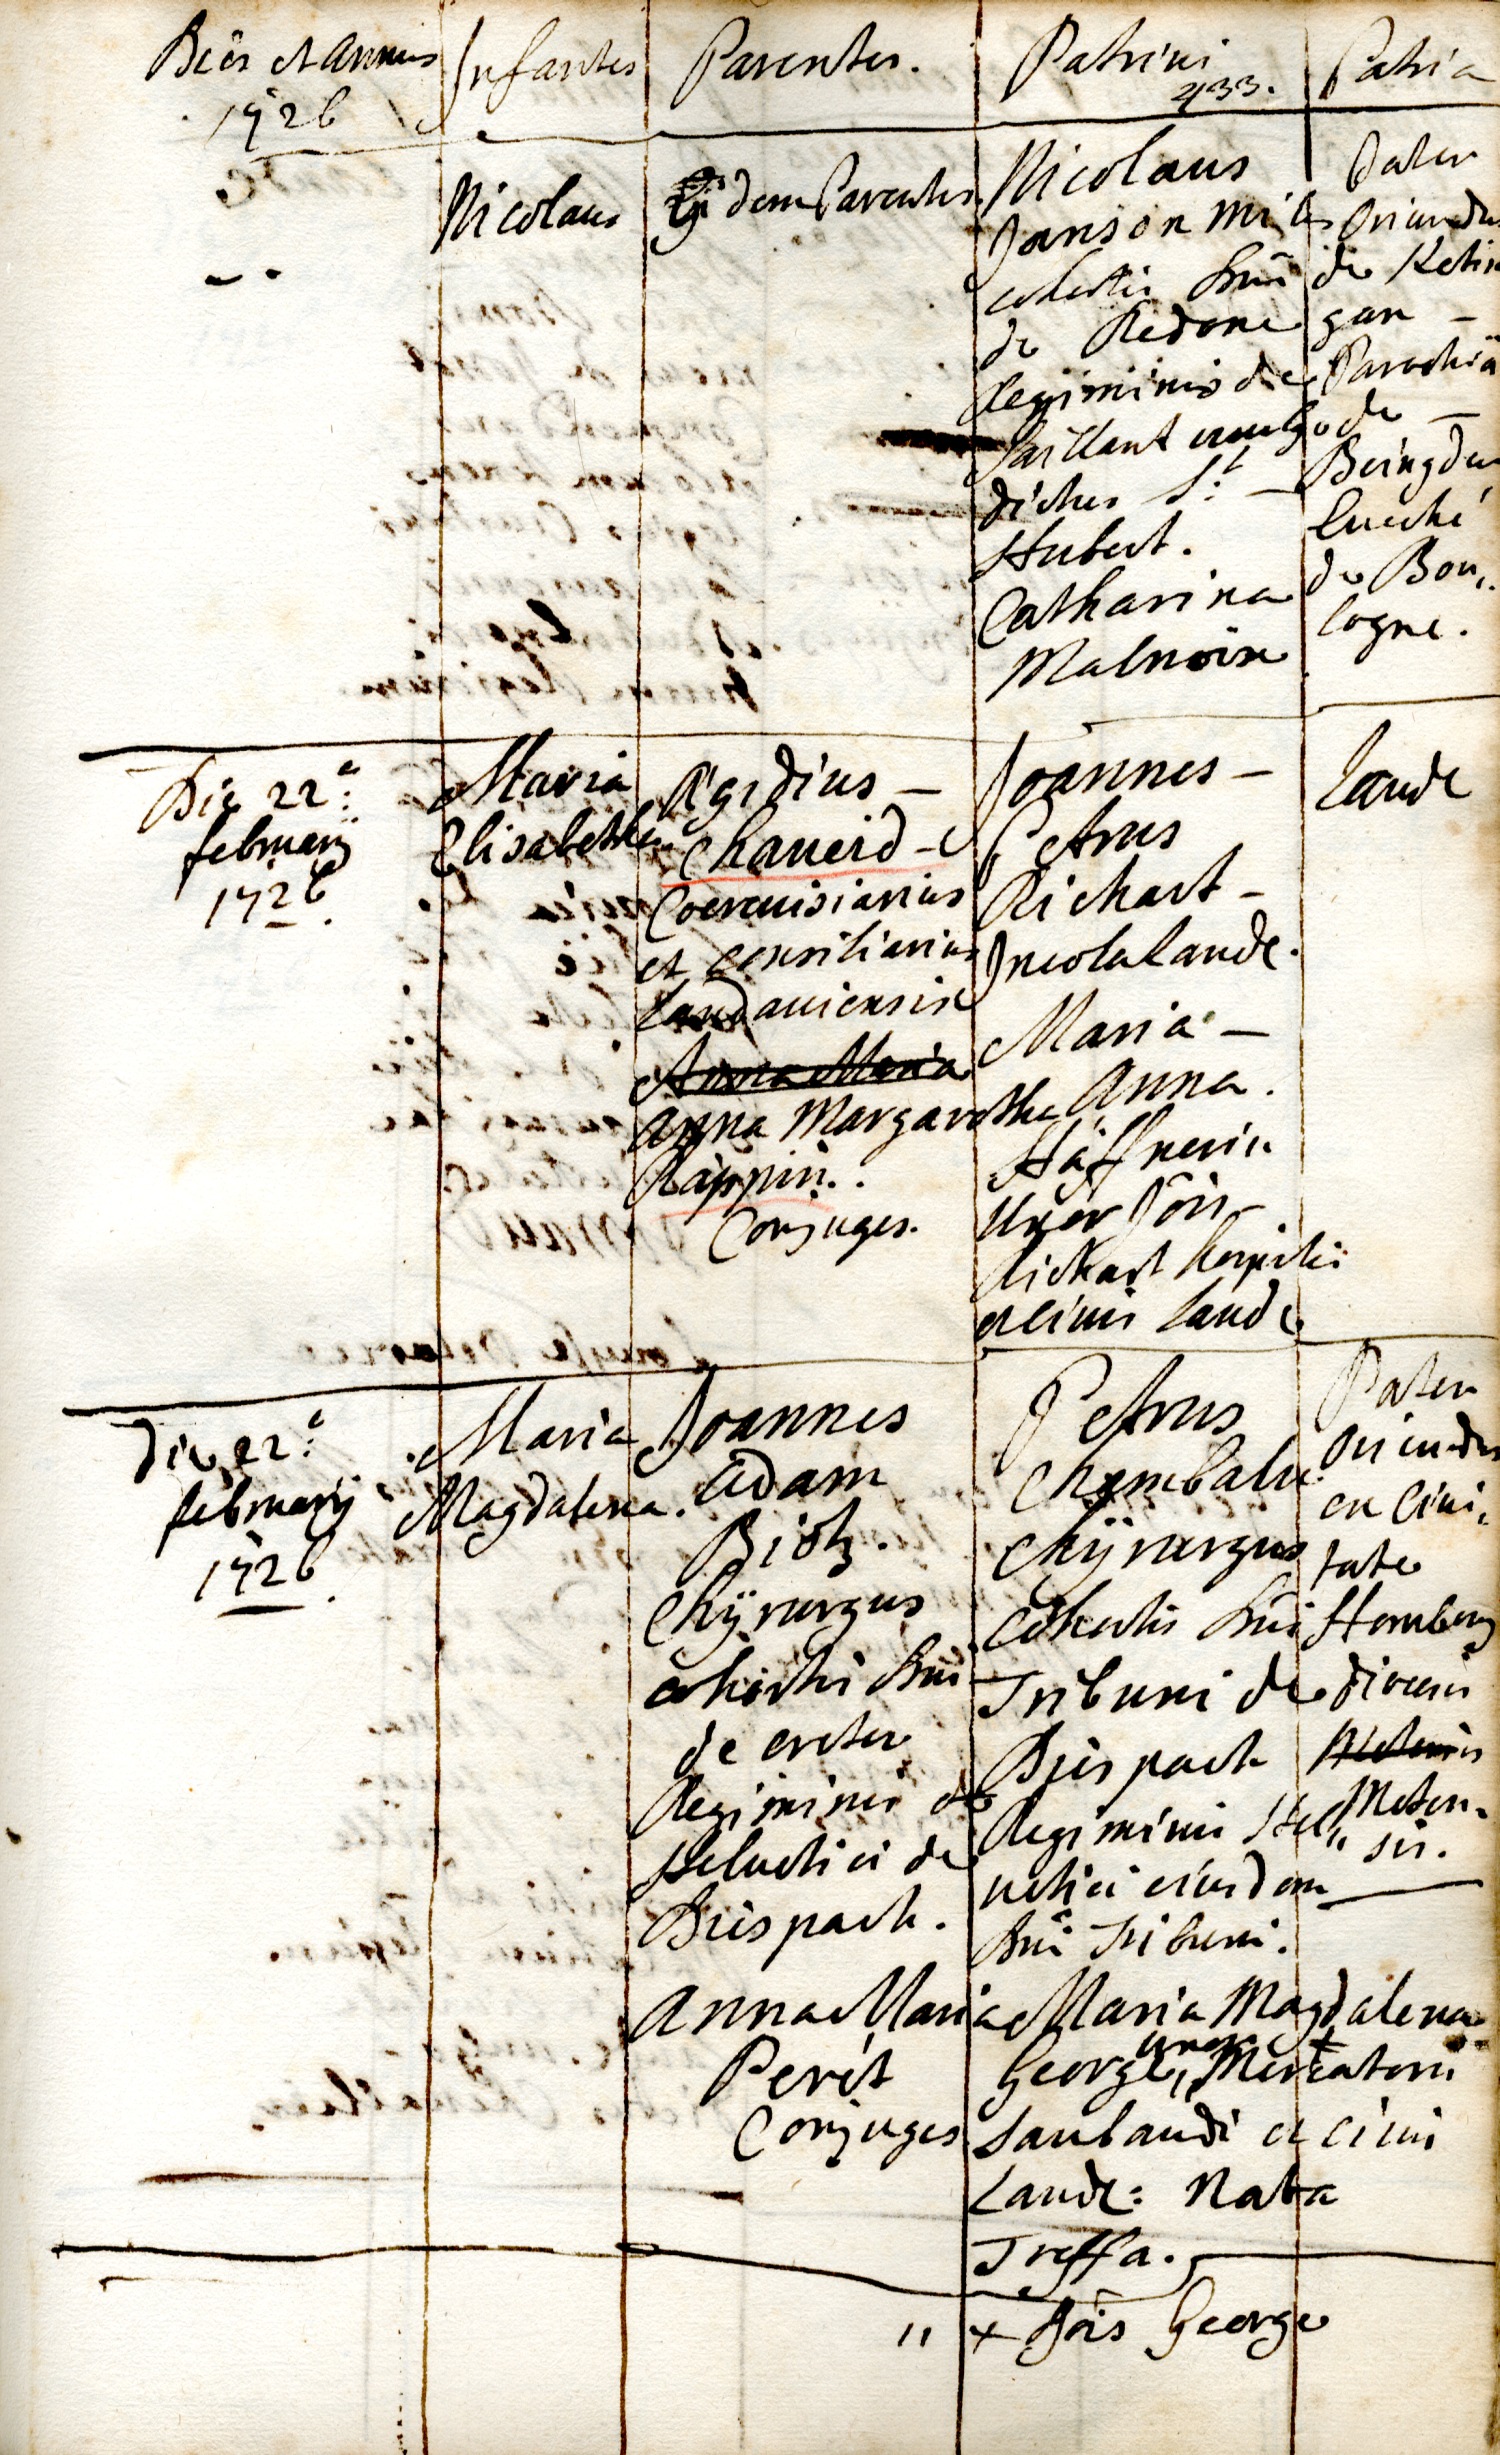 Dies et annus
1726
Infantes
Parentes.
Patrini
433.
Patria
Nicolaus
Eidem Parentes.
Nicolaus
Janson miles
cohortis Dni
de Redone
Regiminis de
Saillant vulgo
dictus St.
Hubert.
Catharina
Malnoise
Pater
oriundus
de
gan -
Parochiâ
de -
de Bou,,
logne.
Die 22a:
februarij
1726.
Maria
Elisabetha
Ægidius -
Chaueid -
Coereuisiarius
et consiliarius
Landauiensis
Anna Maria
anna Margaretha
Rappin.
Conjuges.
Joannes -
Petrus
Richart -
Incola Laudi.
Maria -
Anna.
Häffnerin
Uxor Jôis
Richart hospitis
et ciuis Laud
Laudi
Die 22a:
februarij
1726.
Maria
Magdalena.
Joannes
adam
Chÿrurgus
cohortis Dni
de erster
Regiminis de
Heluetici de
Brispach.
Anna Maria
Perêt
Conjuges
Petrus
Chÿrurgus
cohortis Dni
Tribuni de
Brispach
Regiminis Hel,,
uetici eiusdem
Dni Tribuni.
Maria Magdalena
uxor +
George, Mercatoris
Laubaudi et ciuis
Laudi: Nata
Treffa.
" + Jôis George
Pater
oriundus
ex Ciui,
tate
Homburg
diocesis
Meten-
sis.